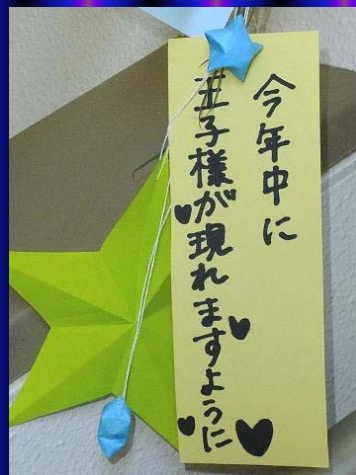 今年中に
王子様が現れますように